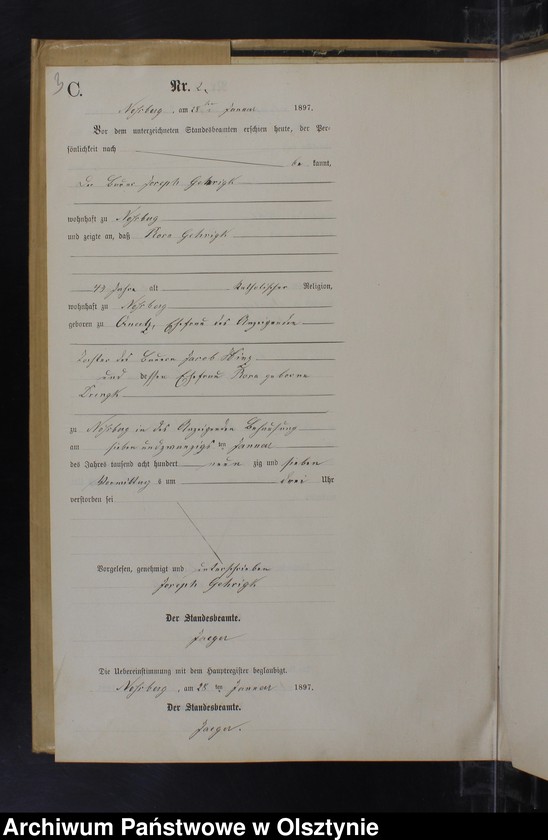 3 C.
Nr. 2.
am 28ten Januar 1897.
Vor dem unterzeichneten Standesbeamten erschien heute, der Per-
sönlichkeit nach
be kannt,
Der Bauer Joseph Gehrigk
wohnhaft zu
und zeigte an, daß Rosa Gehrigk
49 Jahre alt katholischer Religion,
wohnhaft zu
geboren zu Ehefrau des Anzeigenden
Tochter des Bauern Jacob
und dessen Ehefrau Rosa geborene
zu in des Anzeigenden Behausung
am sieben und zwanzigsten Januar
des Jahres tausend acht hundert neun zig und sieben
Vormittag s um drei Uhr
verstorben sei
Vorgelesen, genehmigt und unterschrieben
Joseph Gehrigk
Der Standesbeamte.
Jaeger
Die Uebereinstimmung mit dem Hauptregister beglaubigt.
am 28ten Januar 1897.
Der Standesbeamte.
Jaeger.
Archiwum Państwowe w Olsztynie